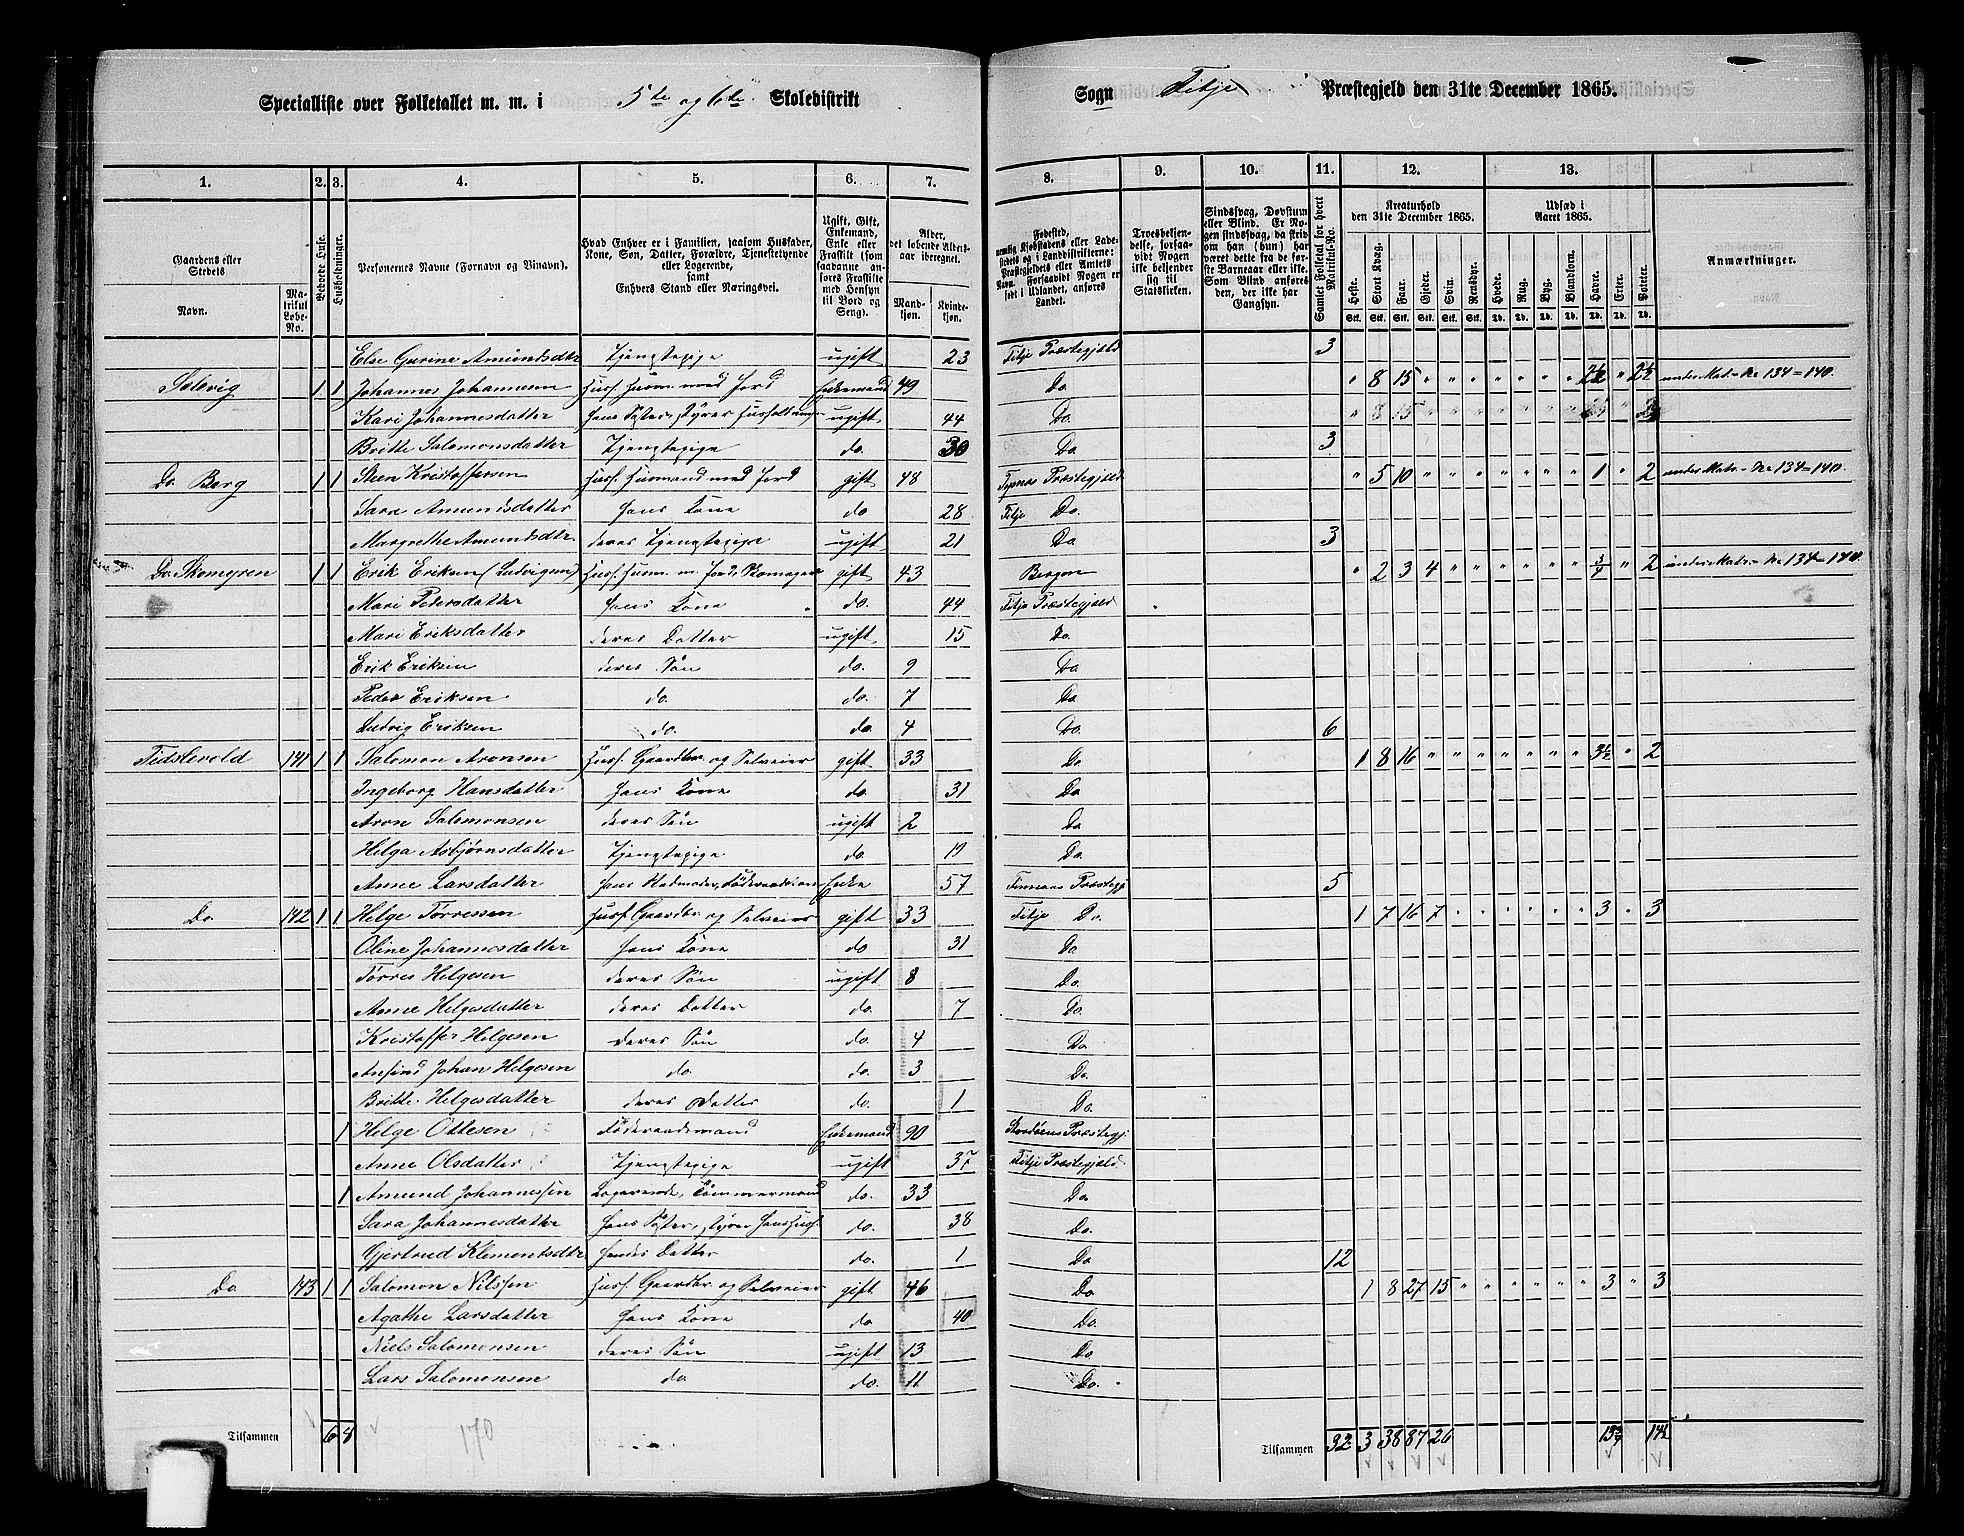 Specialliste over Folketallet m. m. i 5te og 6te Skoledistrikt
Sogn Fitje Præstegjeld den 31te December 1865.
1. 2. 3. 4. 5. 6. 7. 8. 9. 10. 11. 12. 13. 1.
Gaardens eller Stedets
Navn.
Matrikul Løbe-No.
Beboede Huse.
Husholdninger.
Personernes Navne (Fornavn og Tilnavn).
Hvad Enhver er i Familien, saasom Husfader, Kone, Søn, Datter, Forældre, Tjenestetyende eller Logerende, samt Enhvers Stand eller Næringsvei.
Ugift, Gift, Enkemand, Enke eller Fraskilt (som saadanne anføres Fraskilte med Hensyn til Bord og Seng).
Alder, det løbende Alders-aar iberegnet.
Mandkjøn. Kvindekjøn.
Fødested, nemlig Kjøbstadens eller Ladestedets og i Landdistrikterne: Præstegjeldets eller Amtets Navn. Forsaavidt Nogen er født i Udlandet, anføres Landet.
Troesbekjendelse, forsaavidt Nogen ikke bekjender sig til Statskirken.
Sindssvag, Døvstum eller Blind. Er Nogen sindssvag, da skrives om han (hun) har været dette fra de første Barneaar eller ikke. Som Blind anføres den, der ikke har Gangsyn.
Samlet Folketal for hvert Matrikul-No.
Kreaturhold den 31te December 1865.
Heste. Stort Kvæg. Faar. Gjeder. Svin. Rensdyr.
Udsæd i Aaret 1865.
Hvede. Rug. Byg. Blandkorn. Havre. Erter. Poteter.
Anmærkninger.
Else Gurine Amundsdtr Tjenstepige ugift 23 Fitje Præstegjeld 3
Solevig 1 1 Johannes Johannesen Husf. Husm. med Jord Enkemand 49 Do " 8 15 " " " " " " " 2½ " 2½ under Matr-No 134=140.
Kari Johannesdatter hans Søster, styrer Husholdningen ugift 44 Do.
Britte Salomonsdatter Tjenstepige do. 30 Do 3
Do Berg 1 1 Steen Kristoffersen Husf. Husmand med Jord gift 48 Præstegjeld " 5 10 " " " " " " " 1 " 2 under Matr-No 134=140.
Sara Amundsdatter hans Kone do 28 Fitje Do.
Margrethe Amundsdtr. deres Tjenstepige ugift 21 Do 3
Do Skomyren 1 1 Erik Eriksen (Ludvigsen) Husf. Husm. m. Jord, Skomager gift 43 Bergen " 2 3 4 " " " " " " ¾ " 2 under Matr-No 134=140
Mari Pedersdatter hans Kone do. 44 Fitje Præstegjeld
Mari Eriksdatter deres Datter ugift 15 Do.
Erik Eriksen deres Søn do. 9 Do
Peder Eriksen do. do. 7 Do.
Ludvig Eriksen do. do. 4 Do. 6
Tidslevold 141 1 1 Salomon Aronsen Husf. Gaardbr. og Selveier gift 33 Do 1 8 16 " " " " " " " 3½ " 2
Ingeborg Hansdatter hans Kone do. 31 Do
Aron Salomonsen deres Søn ugift 2 Do
Helga Asbjørnsdatter Tjenstepige do. 19 Do.
Anne Larsdatter hans Enke 57 Finnaas Præstegj 5
Do. 142 1 1 Helge Tørressen Husf. Gaardbr. og Selveier gift 33 Fitje Do. 1 7 16 7 " " " " " " 3 " 3
Oline Johannesdatter hans Kone do 31 Do.
Tørres Helgesen deres Søn ugift 8 Do.
Anne Helgesdatter deres Datter do. 7 Do.
Kristoffer Helgesen deres Søn do. 4 Do
Ansind Johan Helgesen do. do. 3 Do.
Britte Helgesdatter deres Datter do. 1 Do.
1 Helge Ottesen Føderaadsmand Enkemand 90 Præstegj.
Anne Olsdatter Tjenstepige ugift 37 Fitje Præstegjeld
1 Amund Johannessen Logerende, Tømmermand do. 33 Do
Sara Johannesdatter hans Søster, styrer Hans Husf. do. 38 Do.
Gjertrud Klementsdtr hendes Datter do. 1 Do 12
Do. 143 1 1 Salomon Nilssen Husf. Gaardbr. og Selveier gift 46 Do 1 8 27 15 " " " " " " 3 " 3
Agathe Larsdatter hans Kone do 40 Do.
Niels Salomonsen deres Søn ugift 13 Do
Lars Salomonsen do do. 11 Do.
Tilsammen 6 8 170
Tilsammen 32 3 38 87 26 13¾ 14½